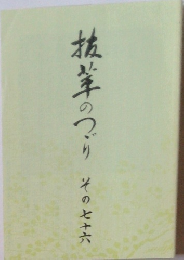 抜萃のつゞり
その七十六